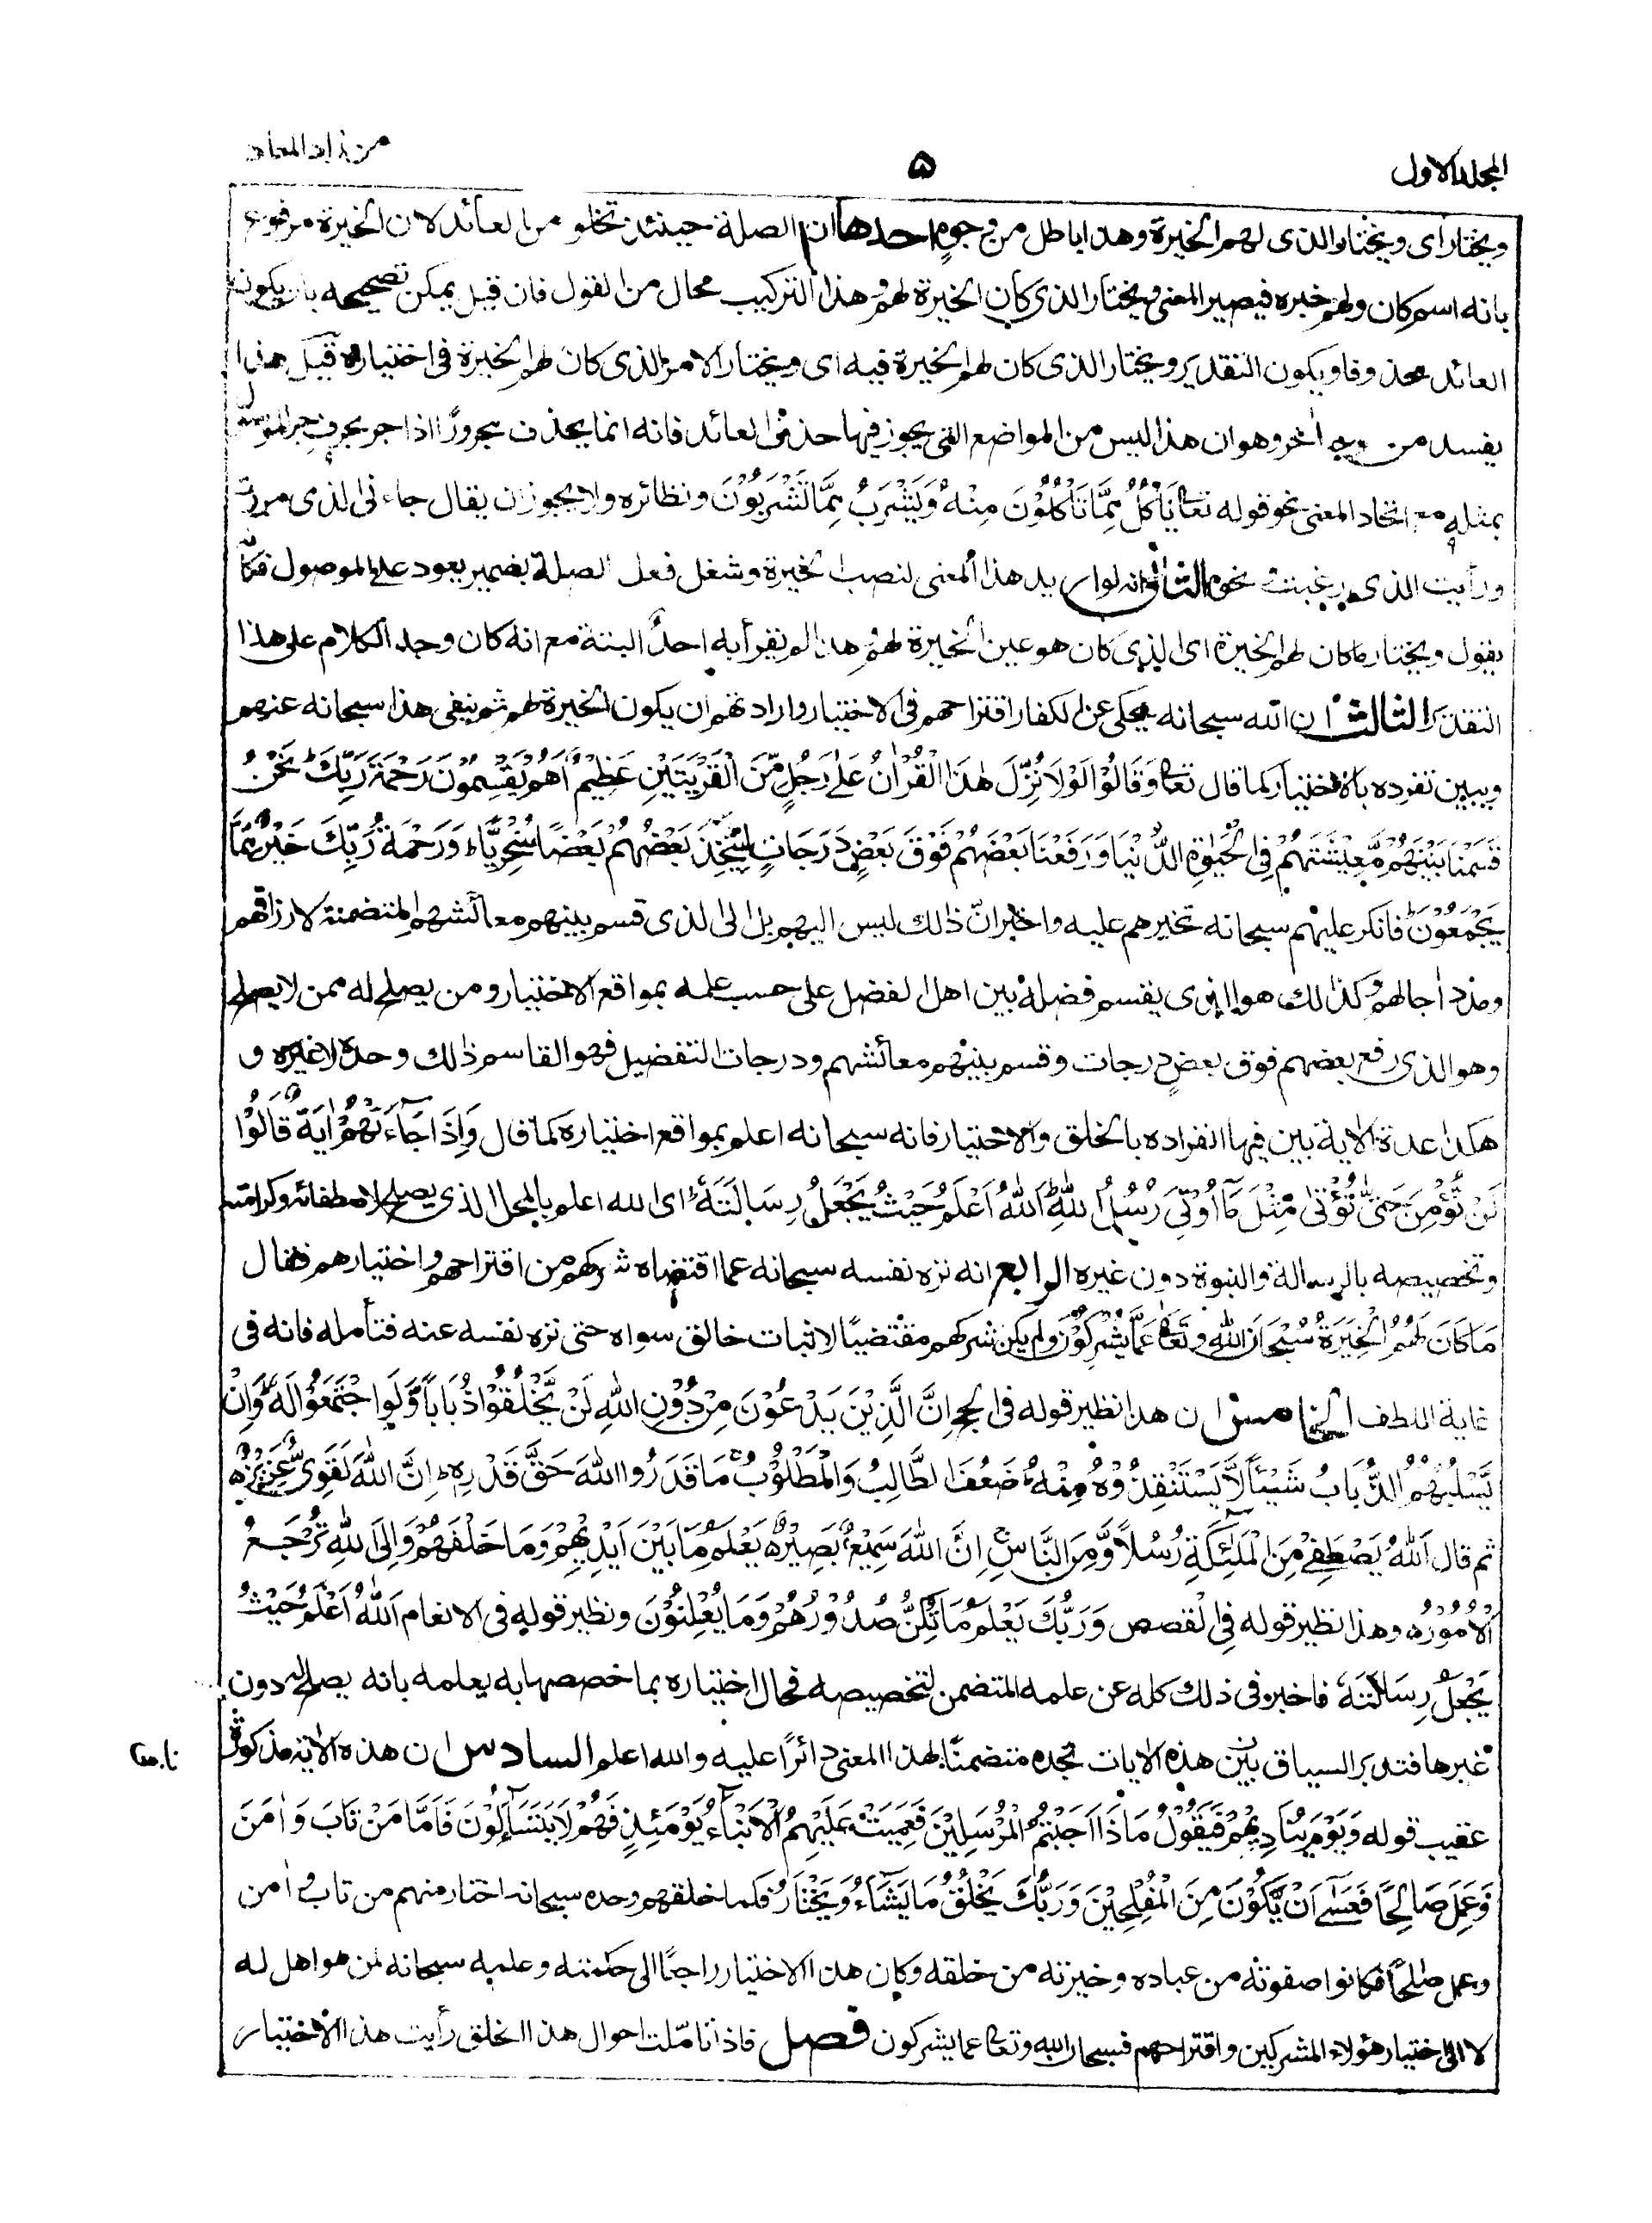 المجلد الاول
۵
من زاد المعاد
ويختار اى ويختار الذى لهم الخيرة وهذا باطل من وجوه احدها ان الصلة حينئذ تخلو من العائد لان الخيرة مرفوع
بانه اسم كان ولهم خبره فيصير المعنى ويختار الذى كان الخيرة لهم وهذا التركيب محال من القول فان قيل يمكن تصحيحه بان يكون
العائد محذوفا ويكون التقدير ويختار الذى كان لهم الخيرة فيه اى ويختار الامر الذى كان لهم الخيرة فى اختياره قيل هذا
يفسد من وجه اخر وهو ان هذا ليس من المواضع التى يجوز فيها حذف العائد فانه انما يحذف مجرورًا اذا جر بحرف جر الموصول
بمثله مع اتحاد المعنى نحو قوله تعالى يَأْكُلُ مِمَّا تَأْكُلُوْنَ مِنْهُ وَيَشْرَبُ مِمَّا تَشْرَبُوْنَ ونظائره ولا يجوز ان يقال جاءنى الذى مررت
ورأيت الذى رغبت ونحوه الثانى انه لو اريد هذا المعنى لنصب الخيرة وشغل فعل الصلة بضمير يعود على الموصول فكأنه
يقول ويختار ما كان لهم الخيرة اى الذى كان هو عين الخيرة لهم وهذا لم يقرأ به احدٌ البتة مع انه كان وجه الكلام على هذا
التقدير الثالث ان الله سبحانه يحكى عن الكفار اقتراحهم فى الاختيار وارادتهم ان يكون الخيرة لهم ثم ينفى هذا سبحانه عنهم
ويبين تفرده بالاختيار كما قال تعالى وَقَالُوْا لَوْلَا نُزِّلَ هٰذَا الْقُرْاٰنُ عَلٰى رَجُلٍ مِّنَ الْقَرْيَتَيْنِ عَظِيْمٍ اَهُمْ يَقْسِمُوْنَ رَحْمَةَ رَبِّكَ نَحْنُ
قَسَمْنَا بَيْنَهُمْ مَّعِيْشَتَهُمْ فِى الْحَيٰوةِ الدُّنْيَا وَرَفَعْنَا بَعْضَهُمْ فَوْقَ بَعْضٍ دَرَجَاتٍ لِيَتَّخِذَ بَعْضُهُمْ بَعْضًا سُخْرِيًّا وَرَحْمَةُ رَبِّكَ خَيْرٌ مِّمَّا
يَجْمَعُوْنَ فانكر عليهم سبحانه تخيرهم عليه واخبر انّ ذالك ليس اليهم بل الى الذى قسم بينهم معائشهم المتضمنة لارزاقهم
ومدد أجالهم وكذالك هو الذى يقسم فضله بين اهل الفضل على حسب علمه بمواقع الاختيار ومن يصلح له ممن لا يصلح
وهو الذى رفع بعضهم فوق بعضٍ درجات وقسم بينهم معائشهم ودرجات التفضيل فهو القاسم ذالك وحده لا غيره و
هكذا هذه الاية بين فيها انفراده بالخلق والاختيار فانه سبحانه اعلم بمواقع اختياره كما قال وَاِذَا جَآءَتْهُمْ اٰيَةٌ قَالُوْا
لَنْ نُّؤْمِنَ حَتّٰى نُؤْتٰى مِثْلَ مَآ اُوْتِىَ رُسُلُ اللّٰهِ اَللّٰهُ اَعْلَمُ حَيْثُ يَجْعَلُ رِسَالَتَهُ اى الله اعلم بالمحل الذى يصلح لاصطفائه وكرامته
وتخصيصه بالرسالة والنبوة دون غيره الرابع انه نزه نفسه سبحانه عما اقتضاه شركهم من اقتراحهم واختيارهم فقال
مَا كَانَ لَهُمُ الْخِيَرَةُ سُبْحَانَ اللّٰهِ وَتَعَالٰى عَمَّا يُشْرِكُوْنَ ولم يكن شركهم مقتضيًا لاثبات خالق سواه حتى نزه نفسه عنه فتأمله فانه فى
غاية اللطف الخامس ان هذا نظير قوله فى الحج اِنَّ الَّذِيْنَ يَدْعُوْنَ مِنْ دُوْنِ اللّٰهِ لَنْ يَّخْلُقُوْا ذُبَابًا وَّلَوِ اجْتَمَعُوْا لَهُ وَاِنْ
يَّسْلُبْهُمُ الذُّبَابُ شَيْئًا لَّا يَسْتَنْقِذُوْهُ مِنْهُ ضَعُفَ الطَّالِبُ وَالْمَطْلُوْبُ مَا قَدَرُوا اللّٰهَ حَقَّ قَدْرِهٖ اِنَّ اللّٰهَ لَقَوِىٌّ عَزِيْزٌ
ثم قال اَللّٰهُ يَصْطَفِىْ مِنَ الْمَلٰئِكَةِ رُسُلًا وَّمِنَ النَّاسِ اِنَّ اللّٰهَ سَمِيْعٌ بَصِيْرٌ يَعْلَمُ مَا بَيْنَ اَيْدِيْهِمْ وَمَا خَلْفَهُمْ وَاِلَى اللّٰهِ تُرْجَعُ
الْاُمُوْرُ وهذا نظير قوله فى القصص وَرَبُّكَ يَعْلَمُ مَا تُكِنُّ صُدُوْرُهُمْ وَمَا يُعْلِنُوْنَ ونظير قوله فى الانعام اَللّٰهُ اَعْلَمُ حَيْثُ
يَجْعَلُ رِسَالَتَهُ فاخبر فى ذلك كله عن علمه المتضمن لتخصيصه محال اختياره بما خصصها به يعلمه بانه يصلح له دون
غيرها فتدبر السياق بين هذه الايات تجده متضمنًا لهذا المعنى دائرًا عليه والله اعلم السادس ان هذه الاية مذكورة
عقيب قوله وَيَوْمَ يُنَادِيْهِمْ فَيَقُوْلُ مَاذَا اَجَبْتُمُ الْمُرْسَلِيْنَ فَعَمِيَتْ عَلَيْهِمُ الْاَنْبَآءُ يَوْمَئِذٍ فَهُمْ لَا يَتَسَآءَلُوْنَ فَاَمَّا مَنْ تَابَ وَاٰمَنَ
وَعَمِلَ صَالِحًا فَعَسٰى اَنْ يَّكُوْنَ مِنَ الْمُفْلِحِيْنَ وَرَبُّكَ يَخْلُقُ مَا يَشَآءُ وَيَخْتَارُ فكما خلقهم وحده سبحانه اختار منهم من تاب و اٰمن
وعمل صٰلحًا فكانوا صفوته من عباده وخيرته من خلقه وكان هذا الاختيار راجعًا الى حكمته وعلمه سبحانه لمن هو اهل له
لا الى اختيار هؤلاء المشركين واقتراحهم فسبحان الله وتعالى عما يشركون فصل فاذا تامّلت احوال هذا الخلق رأيت هذا الاختيار